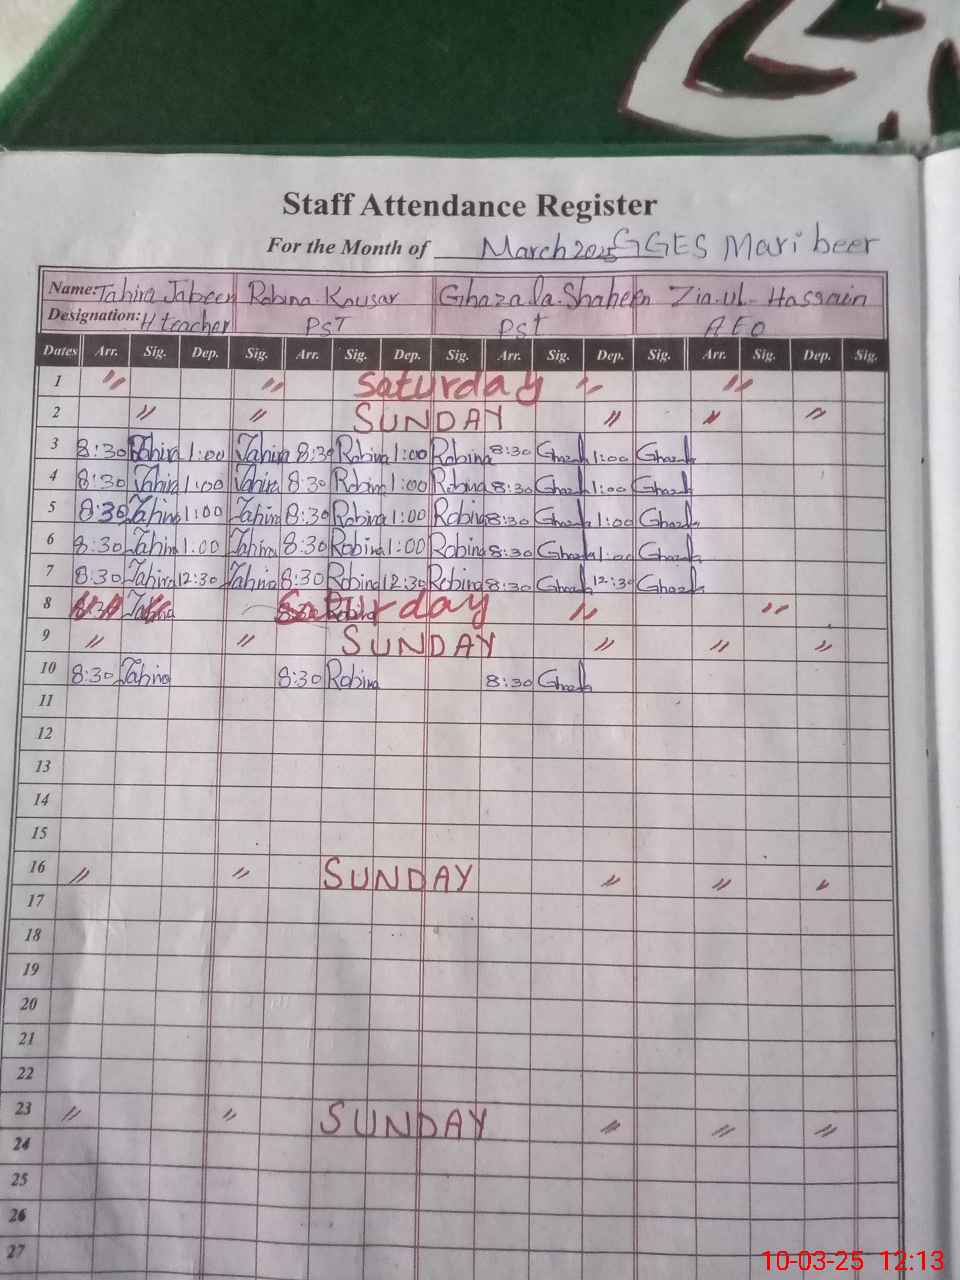 Staff Attendance Register
For the Month of March 2025 GGES Mari beer
Name: Tahira Jabeen Robina Kousar Ghazala Shaheen Zia.ul-Hassain
Designation: H teacher PST PST AEO
Dates Arr. Sig. Dep. Sig. Arr. Sig. Dep. Sig. Arr. Sig. Dep. Sig. Arr. Sig. Dep. Sig.
1 〃 〃 Saturday 〃 〃
2 〃 〃 SUNDAY 〃 〃 〃
3 8:30 Tahira 1:00 Tahira 8:30 Robina 1:00 Robina 8:30 Ghazala 1:00 Ghazala
4 8:30 Tahira 1:00 Tahira 8:30 Robina 1:00 Robina 8:30 Ghazala 1:00 Ghazala
5 8:30 Tahira 1:00 Tahira 8:30 Robina 1:00 Robina 8:30 Ghazala 1:00 Ghazala
6 8:30 Tahira 1:00 Tahira 8:30 Robina 1:00 Robina 8:30 Ghazala 1:00 Ghazala
7 8:30 Tahira 12:30 Tahira 8:30 Robina 12:30 Robina 8:30 Ghazala 12:30 Ghazala
8 8:30 Tahira Saturday 〃 〃
9 〃 〃 SUNDAY 〃 〃 〃
10 8:30 Tahira 8:30 Robina 8:30 Ghazala
11
12
13
14
15
16 〃 〃 SUNDAY 〃 〃 〃
17
18
19
20
21
22
23 〃 〃 SUNDAY 〃 〃 〃
24
25
26
27
10-03-25 12:13